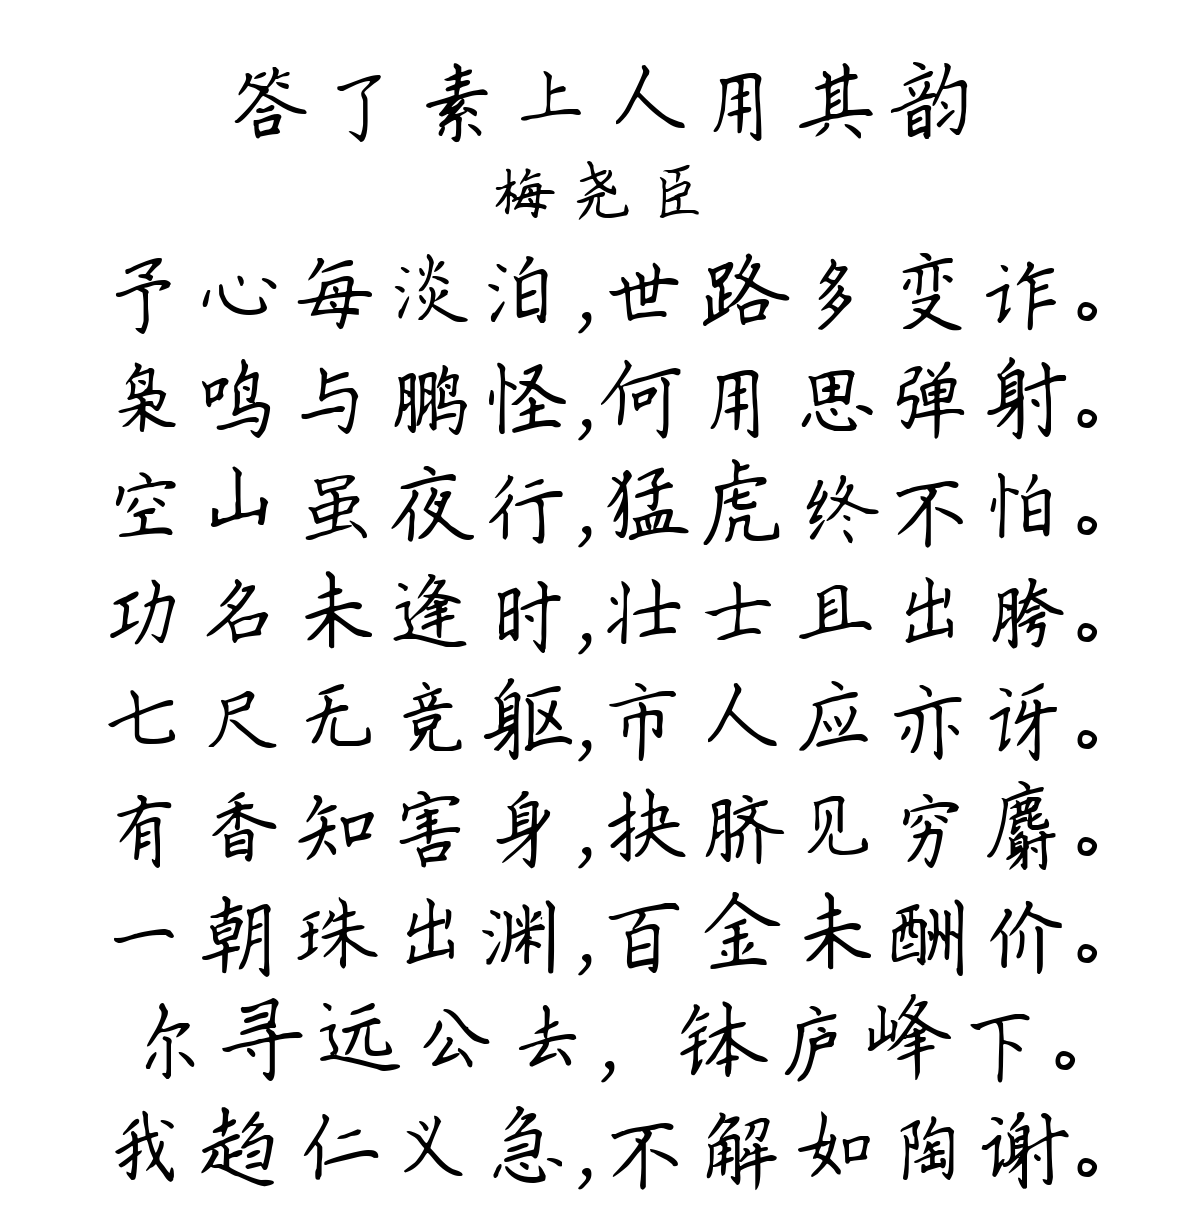 答了素上人用其韵
梅尧臣
予心每淡泊,世路多变诈。
枭鸣与鹏怪,何用思弹射。
空山虽夜行,猛虎终不怕。
功名未逢时,壮士且出胯。
七尺无竞躯,市人应亦讶。
有香知害身,抉脐见穷麝。
一朝珠出渊,百金未酬价。
尔寻远公去，钵庐峰下。
我趋仁义急,不解如陶谢。